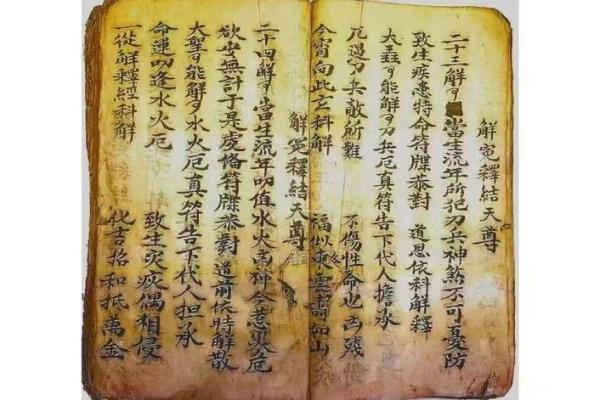 解冤釋結天尊
二十三解〻當生流年所犯刀兵神煞不可憂防
致生疾患特命符牒恭對 道思依科解釋
大聖〻能解〻刀兵厄真符告下代人擔承
厄遇刀兵敵所難 不傷性命也凶殘
今宵向此玄科解 福似東雲壽如山
解冤釋結天尊
二十四解〻當生流年叨值水火神令惹災危
欲安無計于是虔備符牒恭對 道前依時解散
大聖〻能解〻水火厄真符告下代人担承
命運叨逢水火厄 致生災疾偶相侵
一從解釋經科解 化吉招和抵萬金